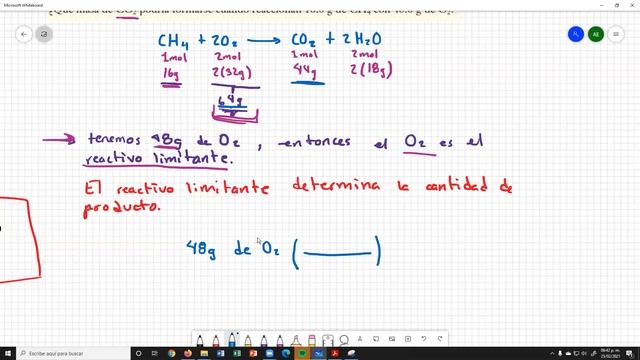 Microsoft Whiteboard
¿Qué masa de CO₂ podría formarse cuando reaccionan de CH₄ con 48.0 g de O₂?
CH₄ + 2O₂ → CO₂ + 2H₂O
1mol 2mol 1mol 2mol
16g 2(32g) 44g 2(18g)
64g
→ tenemos 48g de O₂, entonces el O₂ es el
reactivo limitante.
El reactivo limitante determina la cantidad de
producto.
48g de O₂ (———)
AE
Escribe aquí para buscar
06:42 p. m.
23/02/2021